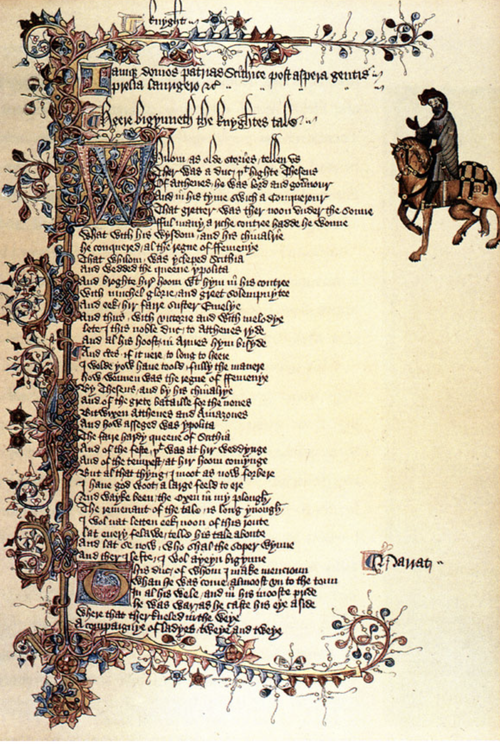 knyght
Iamq; domos patrias Sithice post aspera gentis
prelia laurigero &c
Heere bigynneth the knyghtes tale
Whilom as olde stories tellen us
Ther was a duc þt highte Theseus
Of Atthenes he was lord and gouernour
And in his tyme swich a Conquerour
That gretter was ther noon under the sonne
Ful many a riche contree hadde he wonne
What with his wysdom and his chiualrie
he conquered al the regne of ffemenye
That whilom was ycleped Scithia
And wedded the queene ypolita
And broghte hir hoom wt hym in his contree
With muchel glorie and greet solempnytee
And eek hir faire suster Emelye
And thus with victorie and with melodye
lete I this noble duc to Atthenes ryde
And al his hoost in Armes hym bisyde
And certes if it nere to long to heere
I wolde yow haue toold fully the manere
how wonnen was the regne of ffemenye
By Theseus and by his chiualrye
And of the grete bataille for the nones
Bitwixen Atthenes and Amazones
And how asseged was ypolita
The faire hardy queene of Scithia
And of the feste þt was at hir weddynge
And of the tempest at hir hoom comynge
But al that thyng I moot as now forbere
I haue god woot a large feeld to ere
And wayke been the Oxen in my plough
The remenant of the tale is long ynough
I wol nat letten eek noon of this route
lat euery felawe telle his tale aboute
And lat se now who shal the soper wynne
And ther I lefte I wol ayeyn bigynne
Narrat
This duc of whom I make mencioun
Whan he was come almoost vn to the toun
In al his wele and in his mooste pride
he was war as he caste his eye aside
Where that ther kneled in the weye
A compaignye of ladyes tweye and tweye